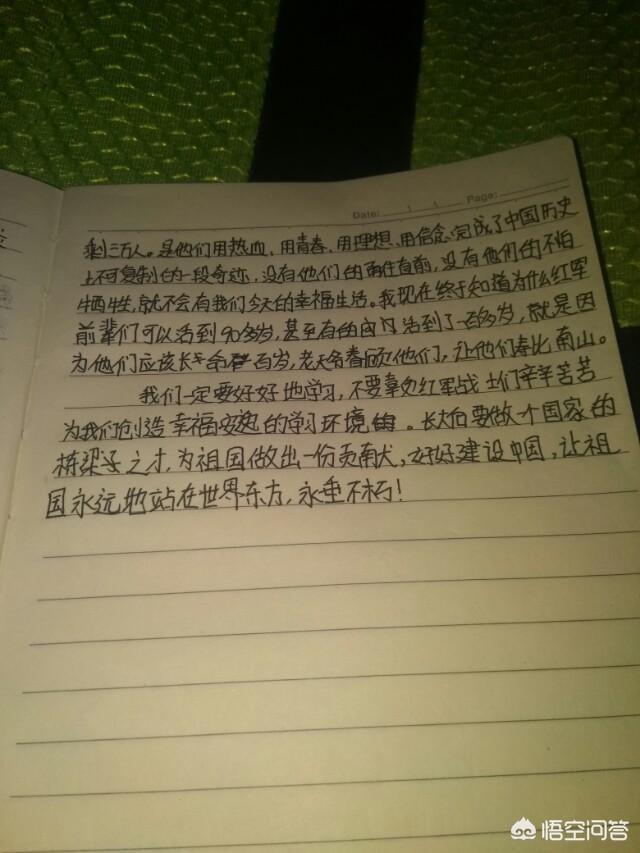 Date: Page:
剩三万人。是他们用热血、用青春、用理想、用信念完成了中国历史
上不可复制的一段奇迹，没有他们的勇往直前，没有他们的不怕
牺牲，就不会有我们今天的幸福生活。我现在终于知道为什么红军
前辈们可以活到90多岁，甚至有的活到了一百多岁，就是因
为他们应该长命百岁，老天爷眷顾他们，让他们寿比南山。
我们一定要好好地学习，不要辜负红军战士们辛辛苦苦
为我们创造幸福安逸的学习环境的。长大后要做一个国家的
栋梁之才，为祖国做出一份贡献，好好建设中国，让祖
国永远地站在世界东方，永垂不朽！
悟空问答